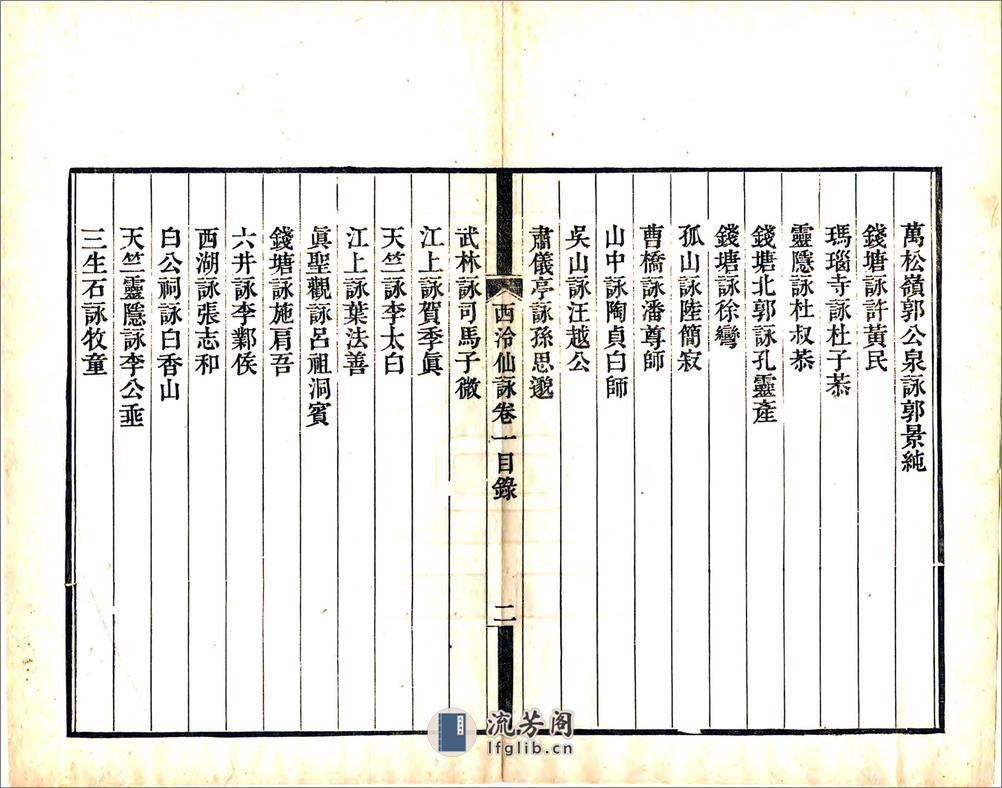 萬松嶺郭公泉詠郭景純
錢塘詠許黃民
瑪瑙寺詠杜子恭
靈隱詠杜叔恭
錢塘北郭詠孔靈產
錢塘詠徐灣
孤山詠陸簡寂
曹橋詠潘尊師
山中詠陶貞白師
吳山詠汪越公
肅儀亭詠孫思邈
西泠仙詠卷一目錄
二
武林詠司馬子微
江上詠賀季眞
天竺詠李太白
江上詠葉法善
眞聖觀詠呂祖洞賓
錢塘詠施肩吾
六井詠李鄴侯
西湖詠張志和
白公祠詠白香山
天竺靈隱詠李公垂
三生石詠牧童
流芳阁
lfglib.cn